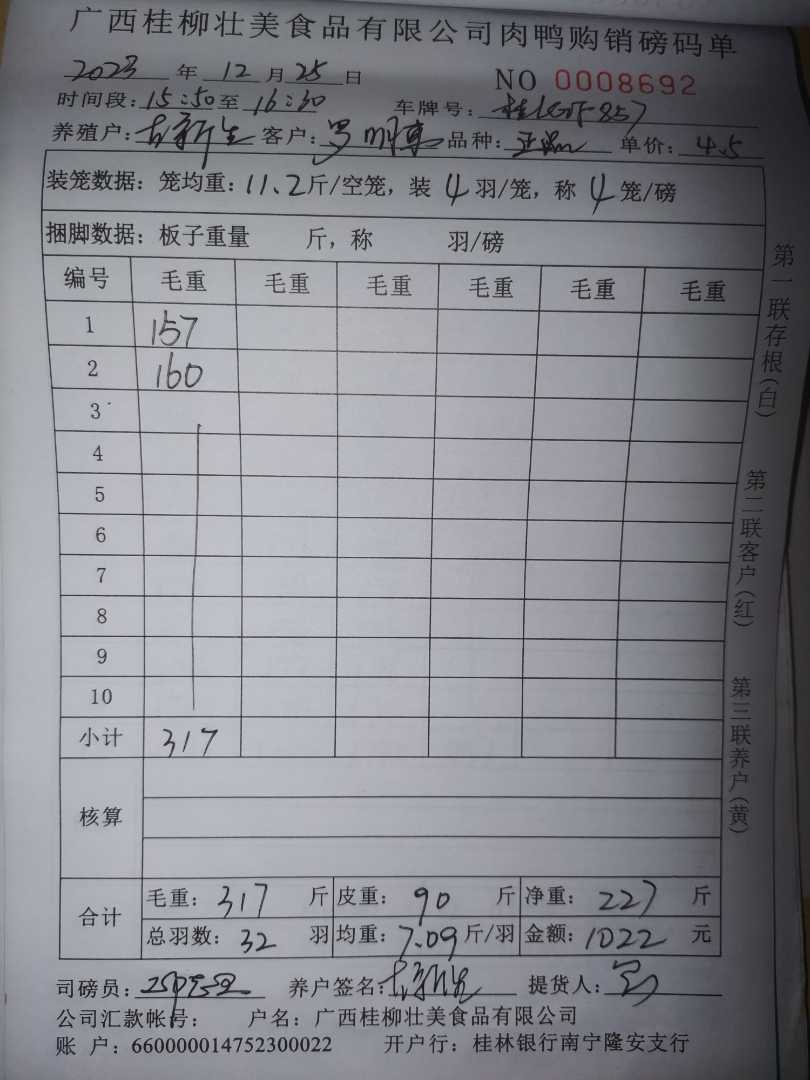 广西桂柳壮美食品有限公司肉鸭购销磅码单
2023 年 12 月 25 日 NO 0008692
时间段: 15:50 至 16:30 车牌号: 桂 857
养殖户: 新 客户: 罗明 品种: 单价: 4.5
装笼数据: 笼均重: 11.2 斤/空笼, 装 4 羽/笼, 称 4 笼/磅
捆脚数据: 板子重量 斤, 称 羽/磅
编号 毛重 毛重 毛重 毛重 毛重 毛重
1 157
2 160
3
4
5
6
7
8
9
10
小计 317
核算
合计 毛重: 317 斤 皮重: 90 斤 净重: 227 斤
总羽数: 32 羽 均重: 7.09 斤/羽 金额: 1022 元
司磅员: 养户签名: 新 提货人:
公司汇款帐号: 户名: 广西桂柳壮美食品有限公司
账 户: 660000014752300022 开户行: 桂林银行南宁隆安支行
第一联存根(白)
第二联客户(红)
第三联养户(黄)